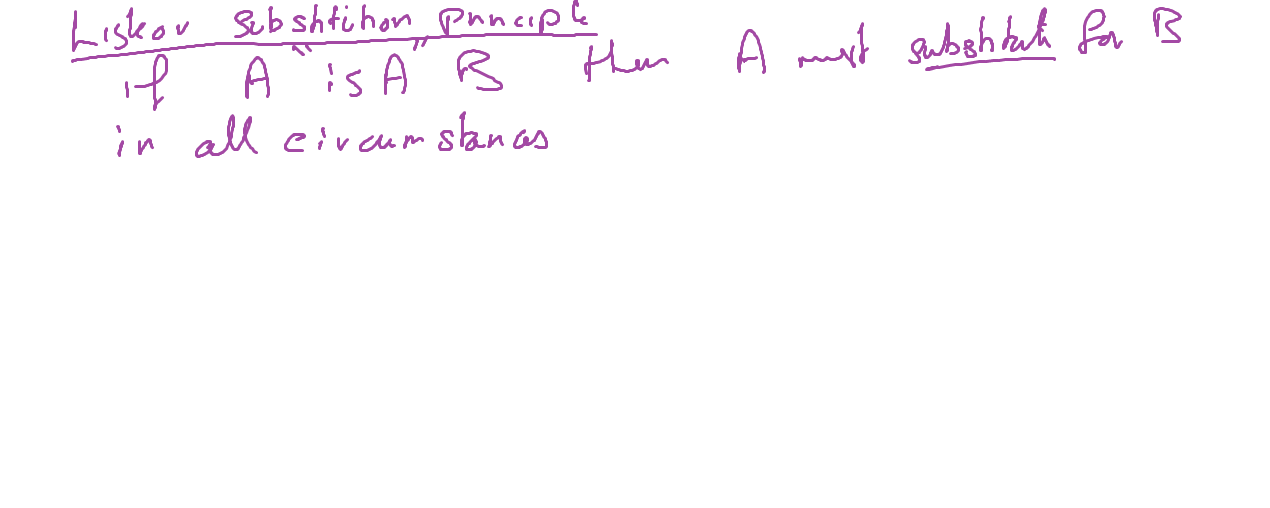 Liskov Substitution Principle
if A "is A" B then A must substitute for B
in all circumstances